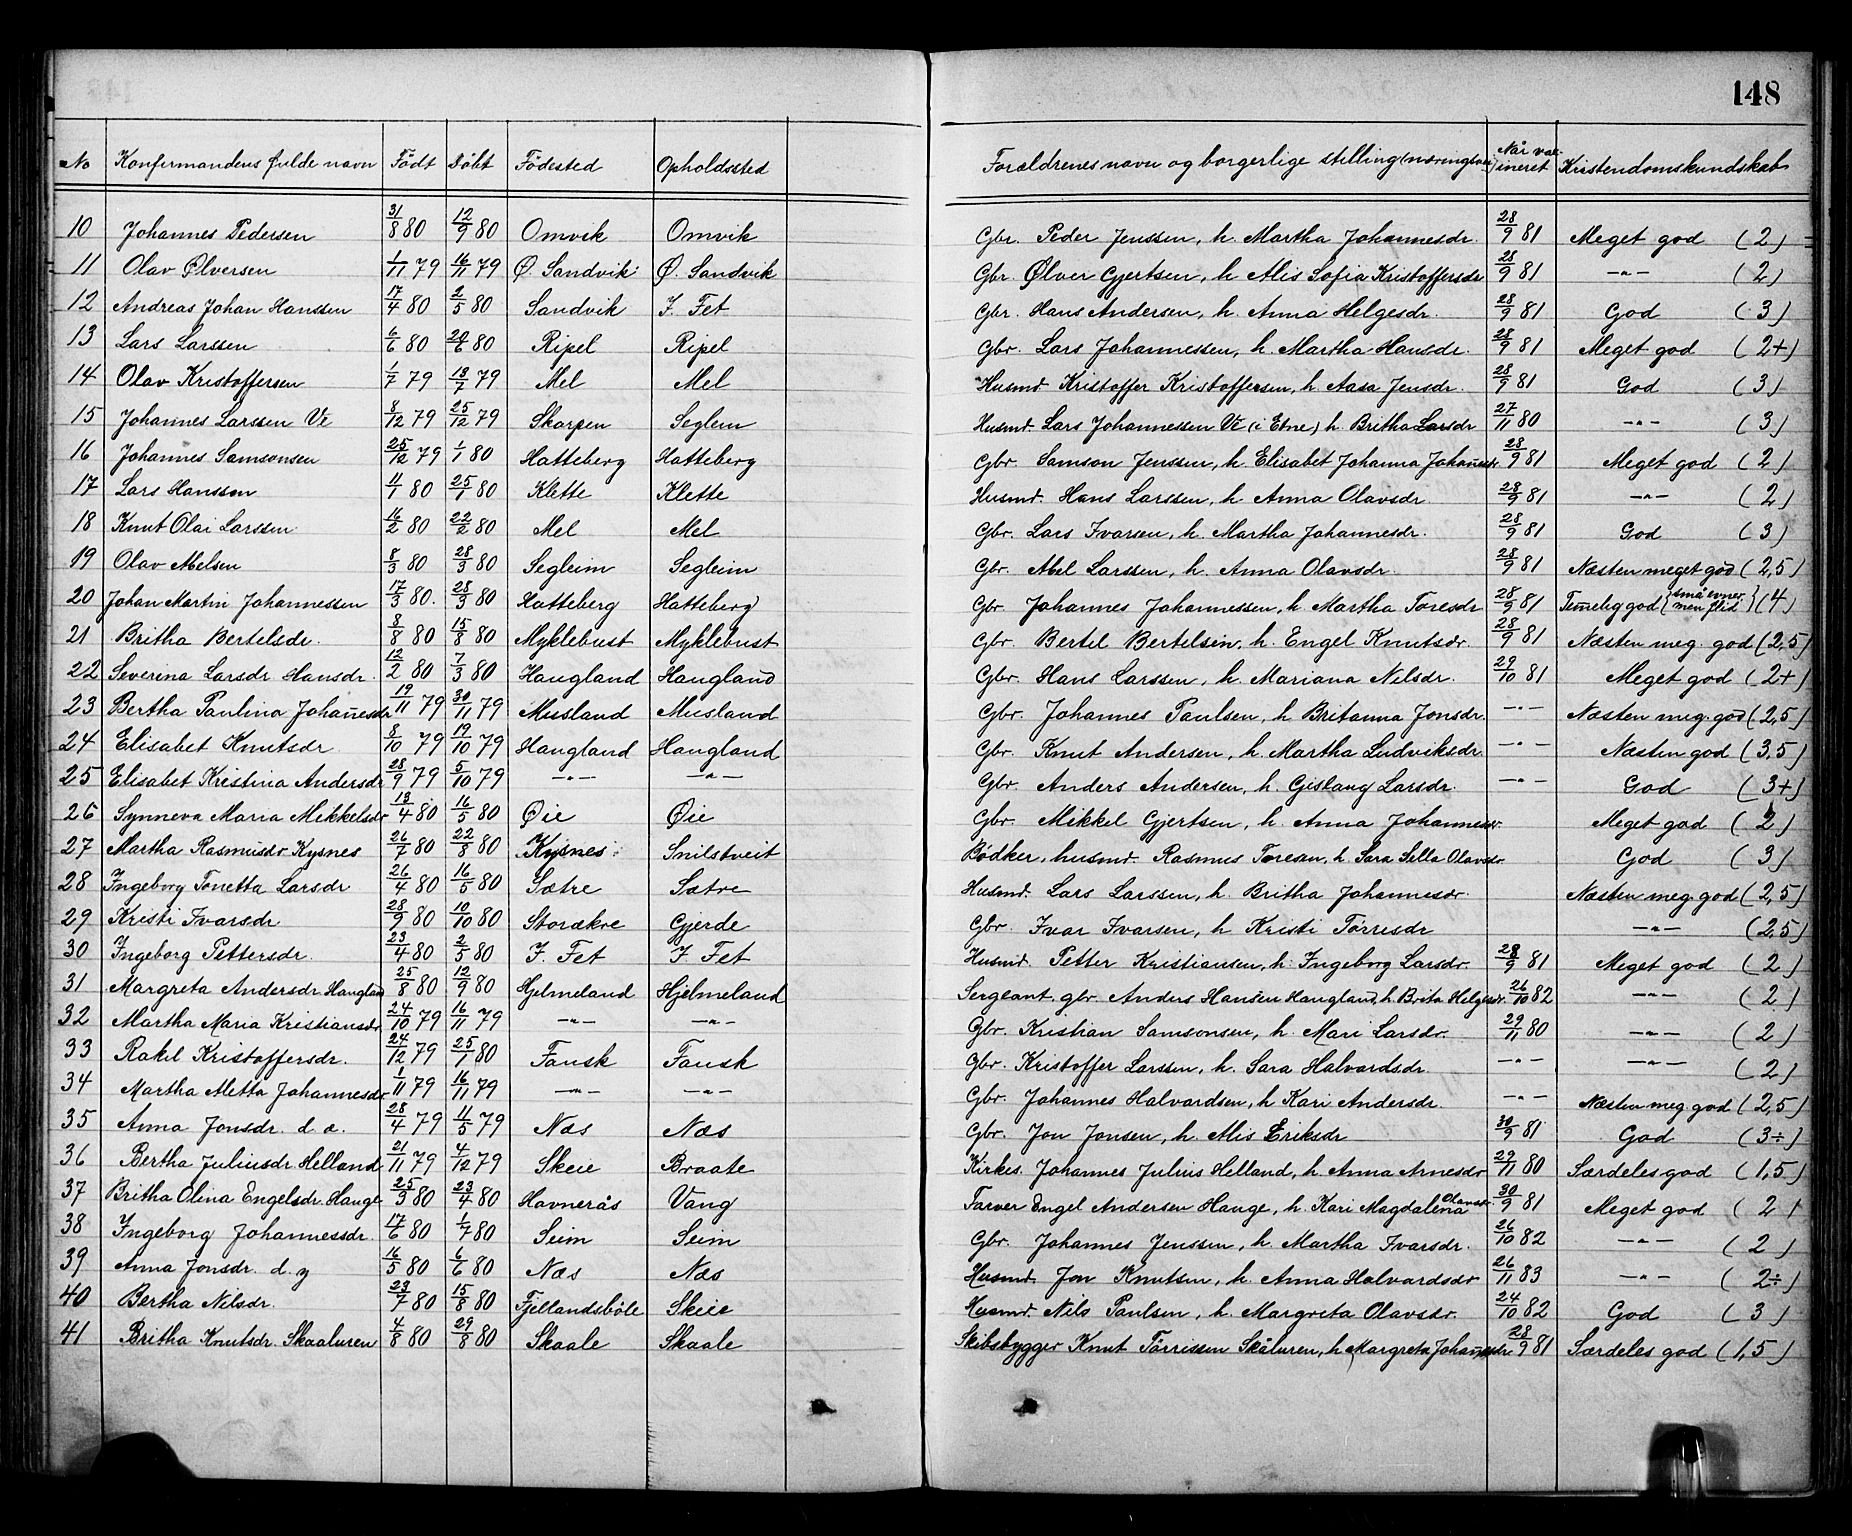 148
No Konfirmandens fulde navn Födt Döbt Födested Opholdssted Forældrenes navn og borgerlige stilling (næringsvei) Når vaccineret Kristendomskundskab
10 Johannes Pedersen 31/8 80 12/9 80 Omvik Omvik Gbr. Peder Jenssen, h. Martha Johannesdr. 28/9 81 Meget god (2)
11 Olav Ølversen 1/11 79 16/11 79 Ø. Sandvik Ø. Sandvik Gbr. Ølver Gjertsen, h. Alis Sofia Kristoffersdr 28/9 81 —"— (2)
12 Andreas Johan Hanssen 17/4 80 2/5 80 Sandvik I. Fet Gbr. Hans Andersen, h. Anna Helgesdr. 28/9 81 God (3)
13 Lars Larssen 6/6 80 20/6 80 Ripel Ripel Gbr. Lars Johannessen, h. Martha Hansdr. 28/9 81 Meget god (2+)
14 Olav Kristoffersen 1/7 79 13/7 79 Mel Mel Husmd. Kristoffer Kristoffersen, h. Aasa Jensdr. 28/9 81 God (3)
15 Johannes Larssen Ve 8/12 79 25/12 79 Skarpen Seglem Husmd. Lars Johannessen Ve (i Etne) h. Britha Larsdr 27/11 80 —"— (3)
16 Johannes Samsonsen 25/12 79 1/1 80 Hatteberg Hatteberg Gbr. Samson Jenssen, h. Elisabet Johanna Johañesdr. 28/9 81 Meget god (2)
17 Lars Hanssen 11/1 80 25/1 80 Klette Klette Husmd. Hans Larssen, h. Anna Olavsdr. 28/9 81 —"— (2)
18 Knut Olai Larssen 16/2 80 22/2 80 Mel Mel Gbr. Lars Ivarsen, h. Martha Johannesdr. 28/9 81 God (3)
19 Olav Abelsen 8/3 80 28/3 80 Segleim Segleim Gbr. Abel Larssen, h. Anna Olavsdr. 28/9 81 Næsten meget god (2,5)
20 Johan Martin Johannessen 17/3 80. 28/3 80 Hatteberg Hatteberg Gbr. Johannes Johannessen, h. Martha Toresdr 28/9 81 Temelig god {små evner men flid} (4)
21 Britha Bertelsdr. 8/8 80 15/8 80 Myklebust Myklebust Gbr. Bertel Bertelsen, h. Engel Knutsdr. 28/9 81 Næsten meg. god (2,5)
22 Severina Larsdr Hansdr. 12/2 80 7/3 80 Haugland Haugland Gbr. Hans Larssen, h. Mariana Nilsdr. 29/10 81 Meget god (2+)
23 Bertha Paulina Johañesdr 19/11 79 30/11 79 Musland Musland Gbr. Johannes Paulsen, h. Britanna Jonsdr. —"— Næsten meg. god (2,5)
24 Elisabet Knutsdr. 8/10 79 19/10 79 Haugland Haugland Gbr. Knut Andersen, h. Martha Ludviksdr. —"— Næsten god (3,5)
25 Elisabet Kristina Andersdr 28/9 79 5/10 79 —"— —"— Gbr. Anders Andersen, h. Gislaug Larsdr. —"— God (3+)
26 Synneva Maria Mikkelsdr 13/4 80 16/5 80 Øie Øie Gbr. Mikkel Gjertsen, h. Anna Johannesdr. Meget god (2)
27 Martha Rasmusdr Kysnes 26/7 80 22/8 80 Kysnes Snilstveit Bödker, husmd. Rasmus Toresen, h. Sara Sella Olavsdr. God (3)
28 Ingeborg Tonetta Larsdr 26/4 80 16/5 80 Sætre Sætre Husmd. Lars Larssen, h. Britha Johannesdr. Næsten meg. god (2,5)
29 Kristi Ivarsdr 28/9 80 10/10 80 Storækre Gjerde Gbr. Ivar Ivarsen, h. Kristi Törresdr —"— (2,5)
30 Ingeborg Pettersdr. 23/4 80 2/5 80 I. Fet I. Fet Husmd. Petter Kristiansen, h. Ingeborg Larsdr. 28/9 81 Meget god (2)
31 Margreta Andersdr Haugland 25/8 80 12/9 80 Hjelmeland Hjelmeland Sergeant, gbr. Anders Hansen Haugland, h. Brita Helgesdr. 26/10 82 —"— (2)
32 Martha Maria Kristiansdr 24/10 79 16/11 79 —"— —"— Gbr. Kristian Samsonsen, h. Mari Larsdr. 29/11 80 —"— (2)
33 Rakel Kristoffersdr. 24/12 79 25/1 80 Fausk Fausk Gbr. Kristoffer Larssen, h. Sara Halvardsdr. —"— —"— (2)
34 Martha Metta Johannesdr 1/11 79 16/11 79 —"— —"— Gbr. Johannes Halvardsen, h. Kari Andersdr. —"— Næsten meg god (2,5)
35 Anna Jonsdr. d. æ. 28/4 79 11/5 79 Næs Næs Gbr. Jon Jonsen, h. Alis Eriksdr 30/9 81 God (3÷)
36 Bertha Juliusdr Helland 21/11 79 4/12 79 Skeie Braate Kirkes. Johannes Julius Helland, h. Anna Arnesdr 29/11 80 Særdeles god (1,5)
37 Britha Olina Engelsdr. Hauge 25/3 80 23/4 80 Havnerås Vang Farver Engel Andersen Hauge, h. Kari Magdalena Olavsdr 30/9 81 Meget god (2)
38 Ingeborg Johannessdr. 17/6 80 1/7 80 Seim Seim Gbr. Johannes Jenssen, h. Martha Ivarsdr. 26/10 82 —"— (2)
39 Anna Jonsdr. d. y 16/5 80 6/6 80 Næs Næs Husmd. Jon Knutsen, h. Anna Halvardsdr 26/11 83 —"— (2÷)
40 Bertha Nilsdr. 23/7 80 15/8 80 Fjellandsböle Skeie Husmd. Nils Paulsen, h. Margreta Olavsdr. 24/10 82 God (3)
41 Britha Knutsdr. Skaaluren 4/8 80 29/8 80 Skaale Skaale Skibsbygger Knut Törrissen Skåluren, h. Margreta Johañesdr. 28/9 81 Særdeles god (1,5)